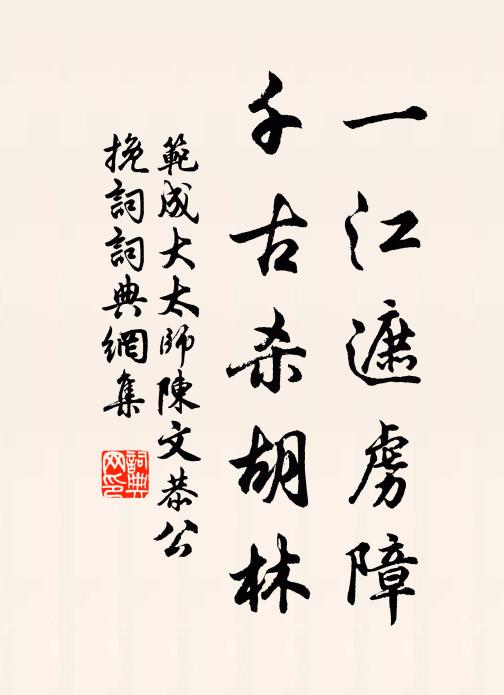 一江遮虜障
千古杀胡林
範成大太師陳文恭公
挽詞詞典網集
詞典
网印